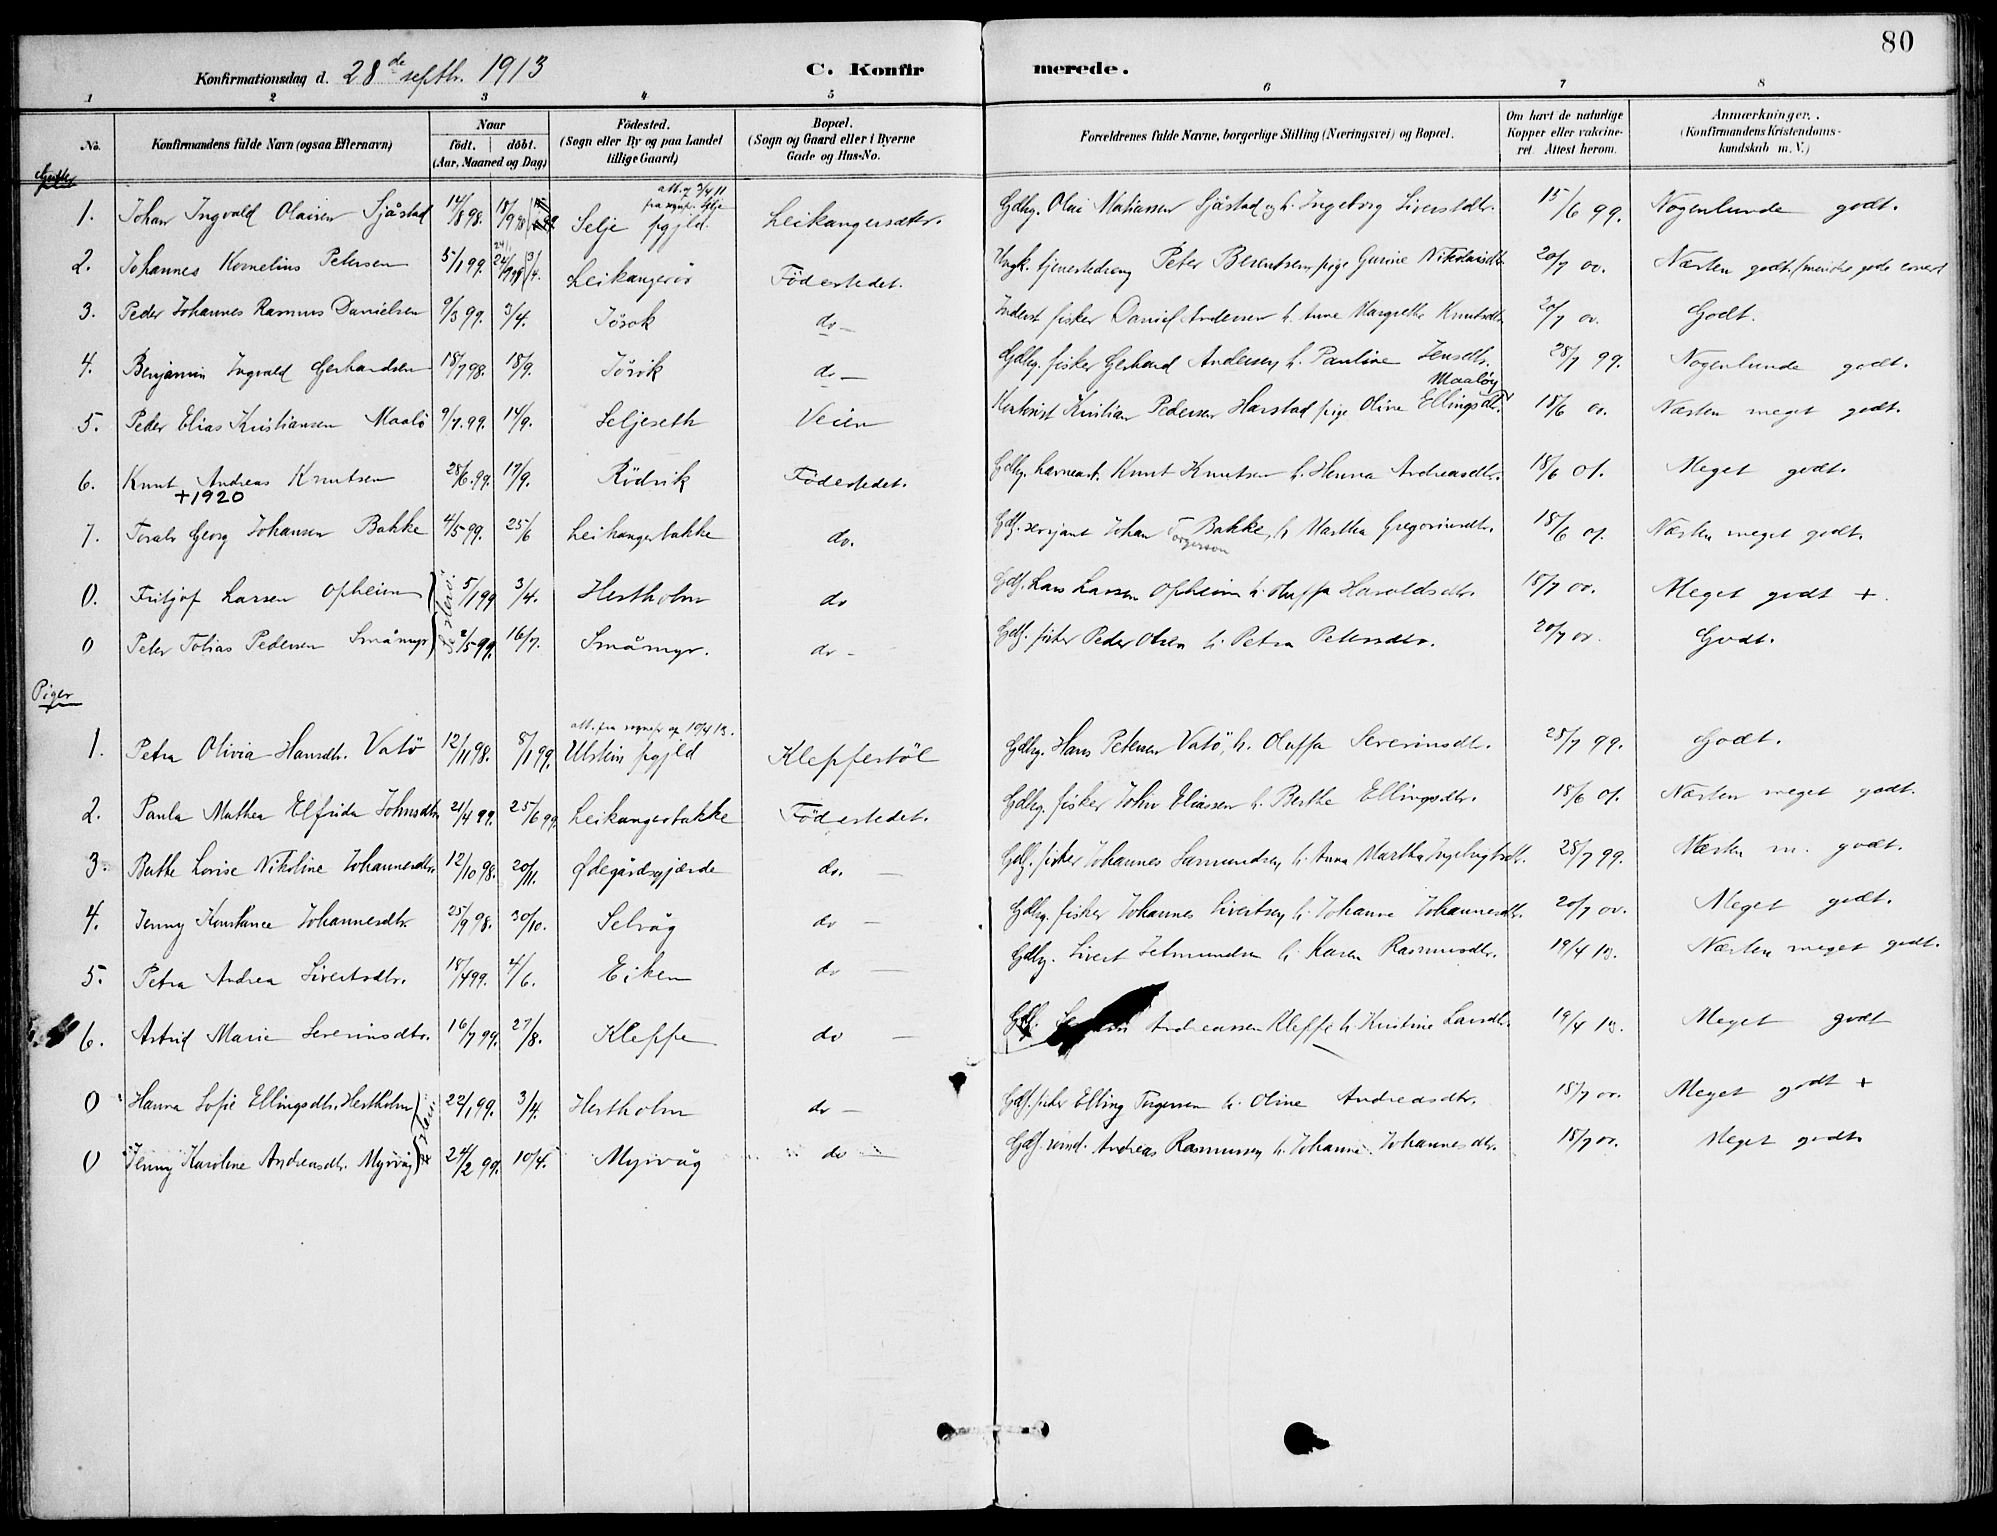 80
Konfirmationsdag d. 28de septbr. 1913 C. Konfirmerede.
1 2 3 4 5 6 7 8
No. Konfirmandens fulde Navn (ogsaa Efternavn) Naar født. døbt. (Aar, Maaned og Dag) Fødested. (Sogn eller By og paa Landet tillige Gaard) Bopæl. (Sogn og Gaard eller i Byerne Gade og Hus-No. Forældrenes fulde Navne, borgerlige Stilling (Næringsvei) og Bopæl. Om havt de naturlige Kopper eller vakcineret. Attest herom. Anmærkninger. (Konfirmandens Kristendomskundskab m. V.)
Gutter
att. af 3/4 11 fra sognepr. Selje
1. Johan Ingvald Olaisen Sjåstad 14/8 98. 18/9 98 Selje pgjld. Leikangersæter. Gdbg. Olai Matiassen Sjåstad og h. Ingeborg Siverstdtr. 15/6 99. Nogenlunde godt.
2. Johannes Kornelius Petersen 5/1 99. 3/4. Leikangerör Födestedet. Ungk. tjenestedreng Peter Berentsen, pige Gurine Nikolaisdtr. 20/7 00. Næsten godt
3. Peder Johannes Rasmus Danielsen 9/3 99. 3/4. Jösok do — Inderst fisker Daniel Andersen h. Anne Margrethe Knutsdtr. 20/7 00. Godt.
4. Benjamin Ingvald Gerhardsen 18/7 98. 18/9. Jösok do — Gdbg. fisker Gerhard Andersen, h. Pauline Jensdtr. 28/7 99. Nogenlunde godt.
Maalöy
5. Peder Elias Kristiansen Maalö 9/7 99. 14/9. Seljeseth Veien Kontorist Kristian Pedersen Harstad pige Oline Ellingsdtr. 18/6 00. Næsten meget godt.
6. Knut Andreas Knutsen 28/6 99. 17/9. Rödvik Födestedet. Gdbg. havneast. Knut Knutsen h. Hanna Andreasdtr. 18/6 01. Meget godt.
+1920
7. Toralv Georg Johansen Bakke 4/5 99. 25/6 Leikangerbakke do. Gdf. serjant Johan Torgersen Bakke, h. Martha Gregoriusdtr. 18/6 01. Næsten meget godt.
0. Fritjof Larsen Opheim 5/1 99 3/4. Hestholm do Gdf. Lars Larsen Opheim h. Haralds dtr. 18/7 00. Meget godt +
0 Peter Tobias Pedersen Småmyr 2/5 99. 16/7. Småmyr. do - Gdf. fisker Peder Olsen h. Petra Petersdtr. 20/7 00. Godt.
Piger
att. fra sognepr af 10/4 13.
1. Petra Olivia Hansdtr. Vatö 12/11 98. 8/1 99. Ulstein pgjld Kleppestöl Gdbg. Hans Petersen Vatö, h. Oluffa Severinsdtr. 28/7 99. Godt.
2. Paula Mathea Elfrida Johnsdtr. 21/4 99. 25/6 99. Leikangerbakke Födestedet. Gdbg. fisker John Eliassen h. Berthe Ellingsdtr. 18/6 01. Næsten meget godt.
3. Berthe Lovise Nikoline Johannesdtr. 12/10 98. 20/11. Ødegårdsgjærde do. — Gdf. fisker Johannes Samundsen, h. Anna Martha Ingebrigtsdtr. 28/7 99. Næsten m. godt.
4. Jenny Konstance Johannesdtr. 25/9 98. 30/10. Selvåg do — Gdbg. fisker Johannes Sivertsen, h. Johanne Johannesdtr. 20/7 00. Meget godt.
5. Petra Andrea Sivertsdtr. 18/4 99. 4/6. Eiken do — Gdbg. Sivert Jetmundsen h. Karen Rasmusdtr. 19/4 13. Næsten meget godt.
6. Astrid Marie Severinsdtr. 16/7 99. 27/8. Kleppe do — Gdf. Andreassen Kleppe h. Kristine Larsdtr. 19/4 13. Meget godt
0 Hanna Sofie Ellingsdtr. Hestholm 22/1 99. 3/4. Hestholm do — Gdf. fisker Elling Torgersen h. Oline Andreasdtr. 18/7 00. Meget godt +
0 Jenny Karoline Andreasdtr. Myrvåg 24/2 99. 10/4. Myrvåg do — Gdf. Andreas Rasmussen, h. Johanne Johannesdtr. 18/7 00. Meget godt.